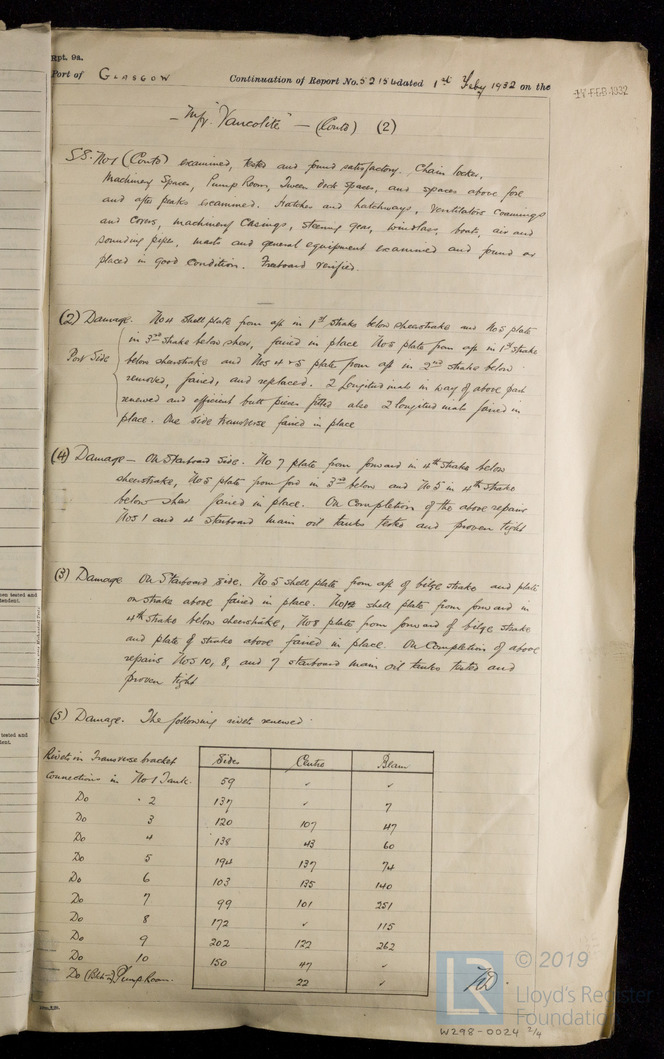 Rpt. 9a.
Port of GLASGOW Continuation of Report No. 52156 dated 1st Feby 1932 on the
FEB 1932
- M/V. "Vancolite" - (Contd) (2)
SS. No 1 (Contd) examined, tested and found satisfactory. Chain locker,
Machinery Spaces, Pump Room, Tween deck spaces, and spaces above fore
and after peaks examined. Hatches and hatchways, Ventilators Coamings
and Covers, machinery Casings, steering gear, windlass, boats, air and
sounding pipes, masts and general equipment examined and found or
placed in good condition. Freeboard verified.
(2) Damage. No 4 shell plate from aft in 1st strake below sheerstrake and No 5 plate
in 3rd strake below sheer, faired in place No 5 plate from aft in 1st strake
Port Side below sheerstrake and Nos 4 & 5 plate from aft in 2nd strake below
removed, faired, and replaced. 2 Longitudinals in way of above part
renewed and efficient butt pieces fitted also 2 longitudinals faired in
place. One side transverse faired in place
(4) Damage - On Starboard Side. No 7 plate from forward in 4th strake below
sheerstrake, No 5 plate from ford in 3rd below and No 5 in 4th strake
below sheer faired in place. On Completion of the above repairs
Nos 1 and 4 Starboard main oil tanks tested and proven tight
(3) Damage On Starboard Side. No 5 shell plate from aft of bilge strake and plate
on strake above faired in place. No 12 shell plate from forward in
4th strake below sheerstrake, No 8 plate from forward of bilge strake
and plate of strake above faired in place. On Completion of above
repairs Nos 10, 8, and 7 starboard main oil tanks tested and
proven tight
(5) Damage. The following rivets renewed.
Rivets in Transverse bracket Sides Centre Beam
Connections in No 1 Tank. 59 ✓ ✓
Do " 2 137 ✓ 7
Do 3 120 107 47
Do 4 138 43 60
Do 5 194 137 74
Do 6 103 135 140
Do 7 99 101 251
Do 8 172 ✓ 115
Do 9 202 122 262
Do 10 150 47 ✓
Do Pump Room. 22 ✓
© 2019
LR
Lloyd's Register
Foundation
W298-0024 2/4